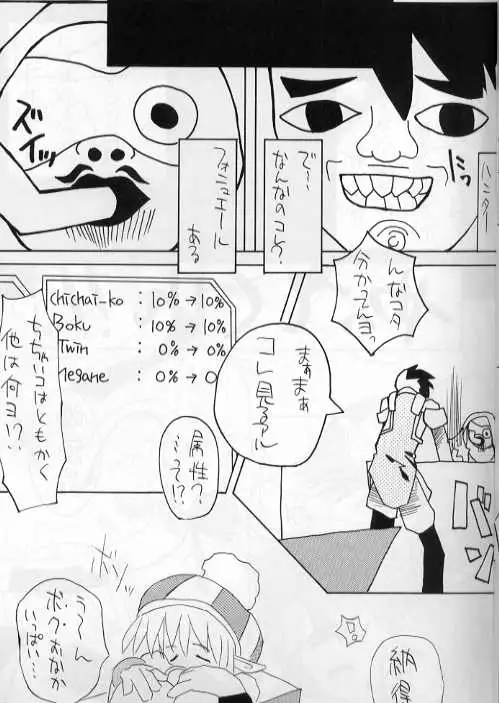 ハンター
ニッ
で…
なんなのコレ?
フォニュエール
ある
ズイッ
んなコタ
分かってんヨっ
まぁまぁ
コレ見るアル
バンッ
chichai-ko : 10% → 10%
Boku : 10% → 10%
Twin : 0% → 0%
Megane : 0% → 0
属性?
…って!?
ちっちゃいコはともかく
他は何ヨ!?
!?
納得
う〜ん
ボク・おなか
いっぱい…